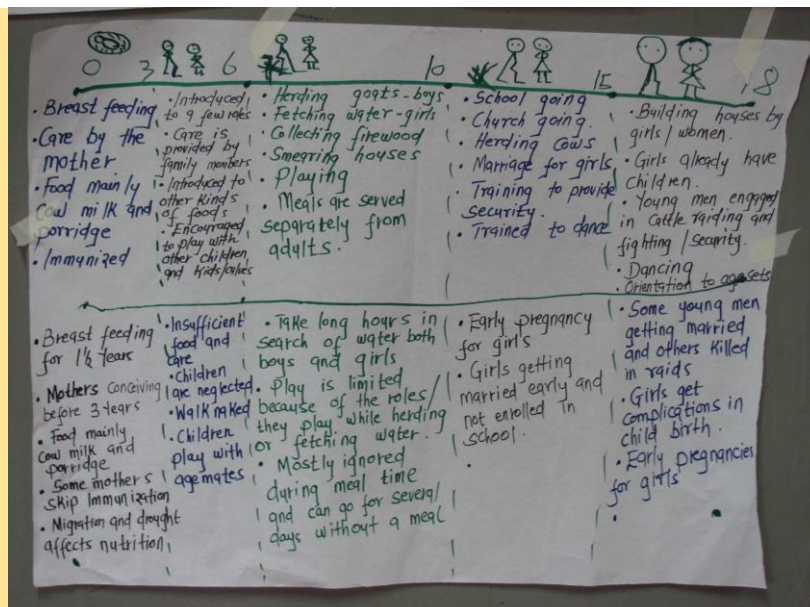 0 3 6 10 15 18
• Breast feeding
• Care by the
mother
• Food mainly
cow milk and
porridge
• Immunized
• Introduced
to a few roles
• Care is
provided by
family members
• Introduced to
other kinds
of foods
• Encouraged
to play with
other children
and kids/calves
• Herding goats-boys
• Fetching water-girls
• Collecting firewood
• Smearing houses
• Playing
• Meals are served
separately from
adults.
• School going
• Church going.
• Herding Cows
• Marriage for girls
• Training to provide
security.
• Trained to dance
• Building houses by
girls/women.
• Girls already have
children.
• Young men engaged
in cattle raiding and
fighting/security.
• Dancing
• Orientation to age sets
• Breast feeding
for 1½ years
• Mothers conceiving
before 3 years
• Food mainly
cow milk and
porridge
• Some mothers
skip Immunization
• Migration and drought
affects nutrition
• Insufficient
food and
care
• Children
are neglected
• Walk naked
• Children
play with
agemates
• Take long hours in
search of water both
boys and girls
• Play is limited
because of the roles/
they play while herding
or fetching water.
• Mostly ignored
during meal time
and can go for several
days without a meal
• Early pregnancy
for girls
• Girls getting
married early and
not enrolled in
school.
• Some young men
getting married
and others killed
in raids
• Girls get
complications in
child birth.
• Early pregnancies
for girls